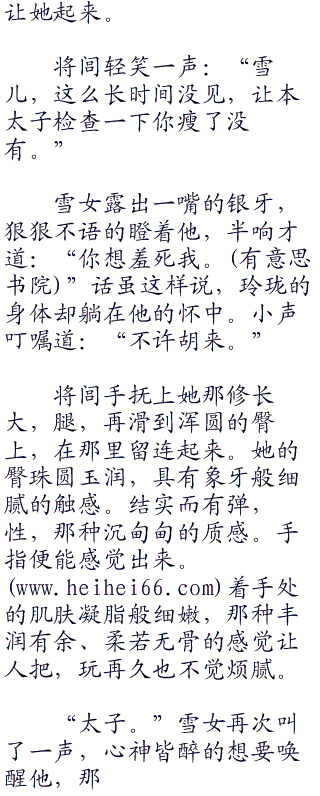 让她起来。
将闾轻笑一声：“雪
儿，这么长时间没见，让本
太子检查一下你瘦了没
有。”
雪女露出一嘴的银牙，
狠狠不语的瞪着他，半响才
道：“你想羞死我。(有意思
书院)”话虽这样说，玲珑的
身体却躺在他的怀中。小声
叮嘱道：“不许胡来。”
将闾手抚上她那修长
大，腿，再滑到浑圆的臀
上，在那里留连起来。她的
臀珠圆玉润，具有象牙般细
腻的触感。结实而有弹，
性，那种沉甸甸的质感。手
指便能感觉出来。
(www.heihei66.com)着手处
的肌肤凝脂般细嫩，那种丰
润有余、柔若无骨的感觉让
人把，玩再久也不觉烦腻。
“太子。”雪女再次叫
了一声，心神皆醉的想要唤
醒他，那